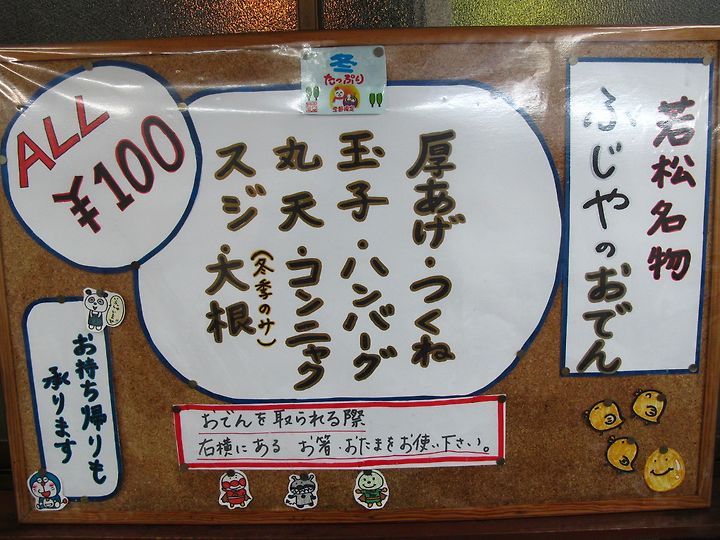 若松名物
ふじやのおでん
冬
たっぷり
ALL
¥100
厚あげ・つくね
玉子・ハンバーグ
丸天・コンニャク
(冬季のみ)
スジ・大根
おでんを取られる際
右横にある お箸・おたまをお使い下さい。
お持ち帰りも
承ります